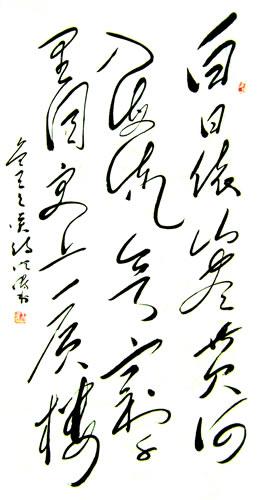 白日依山尽黄河
入海流欲穷千
里目更上一层楼
王之涣诗